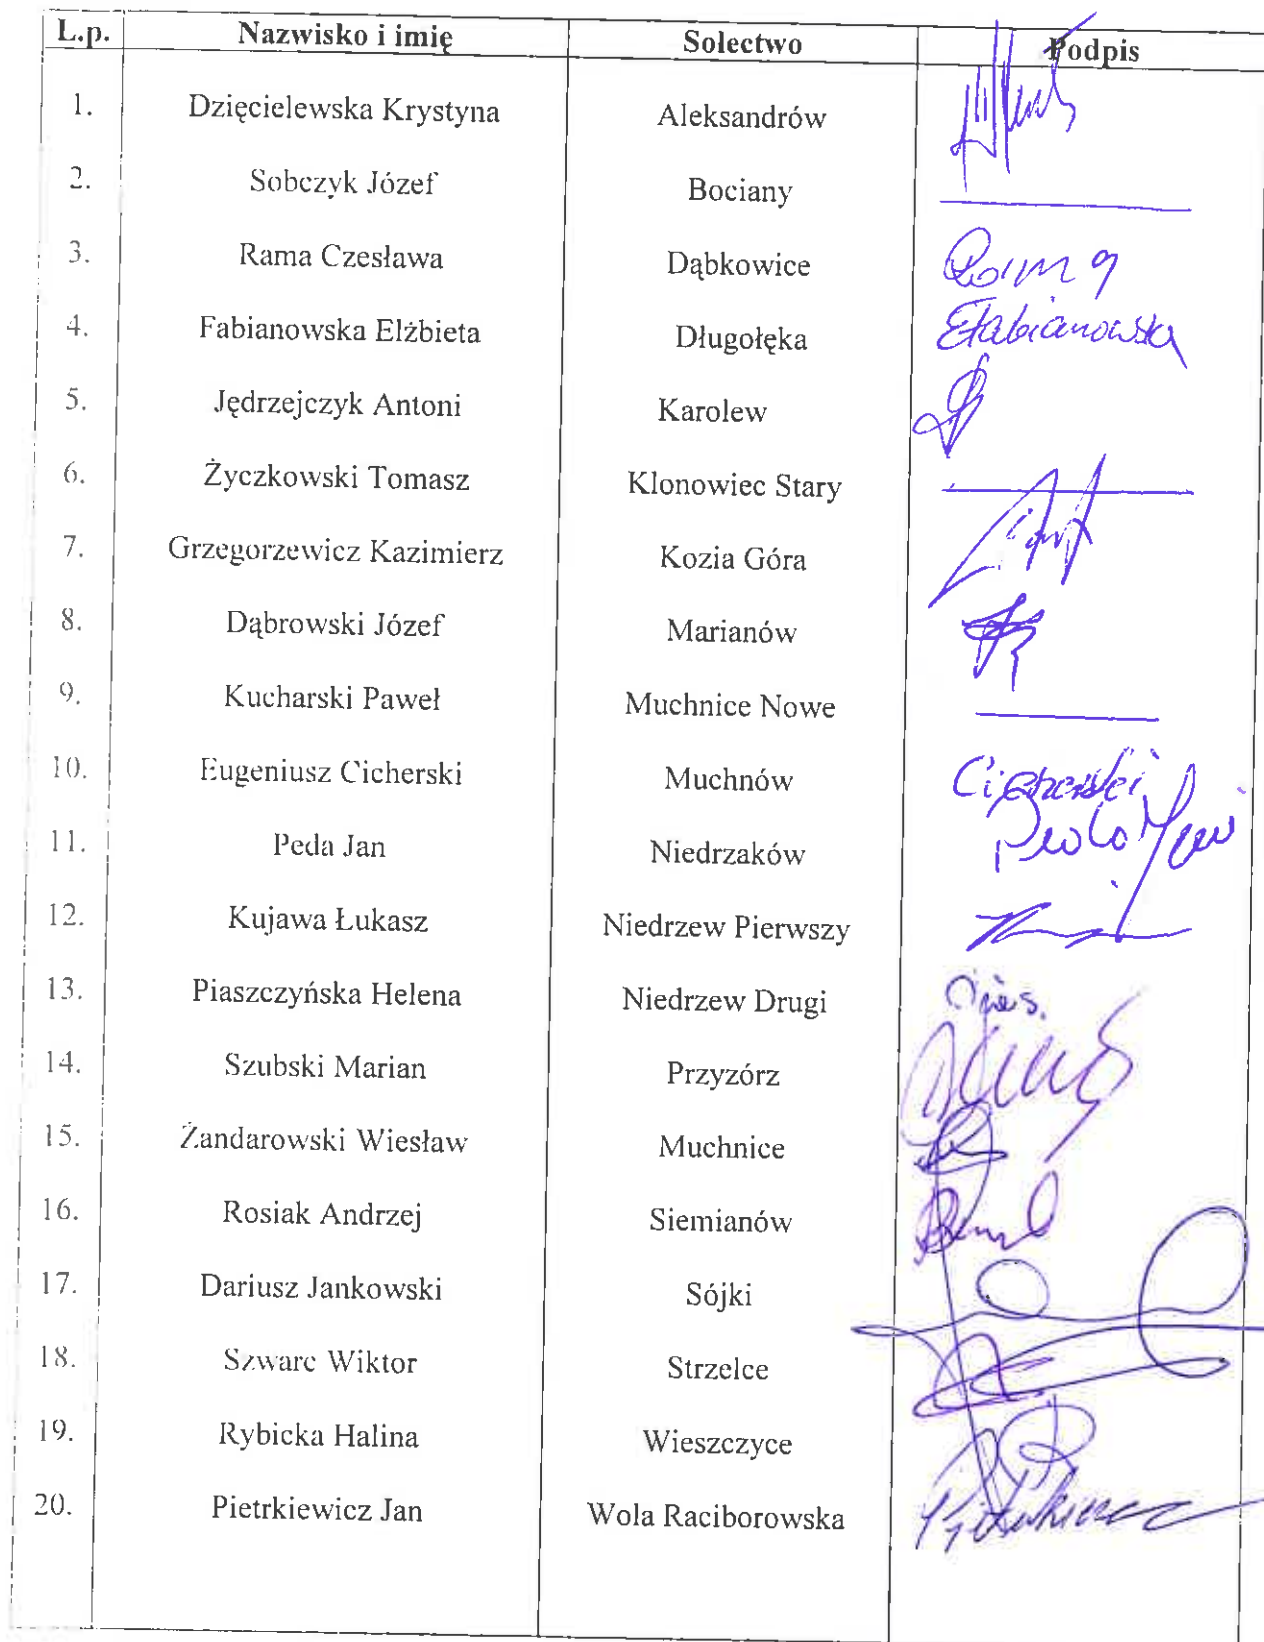 L.p. Nazwisko i imię Solectwo Podpis
1. Dzięcielewska Krystyna Aleksandrów
2. Sobczyk Józef Bociany
3. Rama Czesława Dąbkowice Rama
4. Fabianowska Elżbieta Długołęka EFabianowska
5. Jędrzejczyk Antoni Karolew
6. Życzkowski Tomasz Klonowiec Stary
7. Grzegorzewicz Kazimierz Kozia Góra
8. Dąbrowski Józef Marianów
9. Kucharski Paweł Muchnice Nowe
10. Eugeniusz Cicherski Muchnów Cicherski
11. Peda Jan Niedrzaków
12. Kujawa Łukasz Niedrzew Pierwszy
13. Piaszczyńska Helena Niedrzew Drugi
14. Szubski Marian Przyzórz
15. Żandarowski Wiesław Muchnice
16. Rosiak Andrzej Siemianów
17. Dariusz Jankowski Sójki
18. Szwarc Wiktor Strzelce
19. Rybicka Halina Wieszczyce
20. Pietrkiewicz Jan Wola Raciborowska